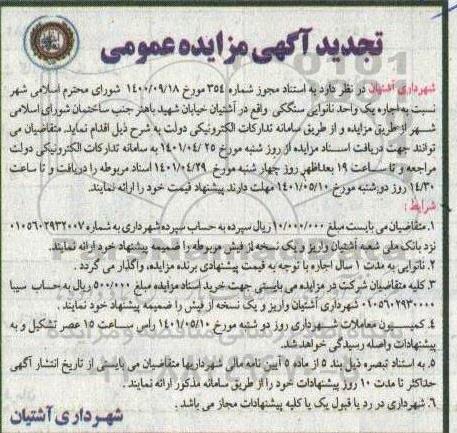 تجدید آگهی مزایده عمومی
شهرداری آشتیان در نظر دارد به استناد مجوز شماره ۳۵۴ مورخ ۱۴۰۰/۰۹/۱۸ شورای محترم اسلامی شهر
نسبت به اجاره یک واحد نانوایی سنگکی واقع در آشتیان خیابان شهید باهنر جنب ساختمان شورای اسلامی
شهر از طریق مزایده و از طریق سامانه تدارکات الکترونیکی دولت به شرح ذیل اقدام نماید. متقاضیان می
توانند جهت دریافت اسناد مزایده از روز شنبه مورخ ۱۴۰۱/۰۴/۲۵ به سامانه تدارکات الکترونیکی دولت
مراجعه و تا ساعت ۱۹ بعدازظهر روز چهار شنبه مورخ ۱۴۰۱/۰۴/۲۹ اسناد مربوطه را دریافت و تا ساعت
۱۴/۳۰ روز دوشنبه مورخ ۱۴۰۱/۰۵/۱۰ مهلت دارند پیشنهاد قیمت خود را ارائه نمایند.
شرایط :
۱. متقاضیان می بایست مبلغ ۱۰/۰۰۰/۰۰۰ ریال سپرده به حساب سپرده شهرداری به شماره ۰۱۰۵۶۰۲۹۳۲۰۰۷
نزد بانک ملی شعبه آشتیان واریز و یک نسخه از فیش مربوطه را ضمیمه پیشنهاد خود ارائه نمایند.
۲. نانوایی به مدت ۱ سال اجاره با توجه به قیمت پیشنهادی برنده مزایده، واگذار می گردد .
۳. کلیه متقاضیان شرکت در مزایده می بایستی جهت خرید اسناد مزایده مبلغ ۵۰۰/۰۰۰ ریال به حساب سیبا
۰۱۰۵۶۰۲۹۳۰۰۰۰ شهرداری آشتیان واریز و یک نسخه از فیش را ضمیمه پیشنهاد خود نمایند .
۴. کمیسیون معاملات شهرداری روز دو شنبه مورخ ۱۴۰۱/۰۵/۱۰ راس ساعت ۱۵ عصر تشکیل و به
پیشنهادات واصله رسیدگی خواهد شد.
۵. به استناد تبصره ذیل بند ۵ از ماده ۵ آیین نامه مالی شهرداریها متقاضیان می بایستی از تاریخ انتشار آگهی
حداکثر تا مدت ۱۰ روز پیشنهادات خود را از طریق سامانه مذکور ارائه نمایند .
۶. شهرداری در رد یا قبول یک یا کلیه پیشنهادات مجاز می باشد .
شهرداری آشتیان